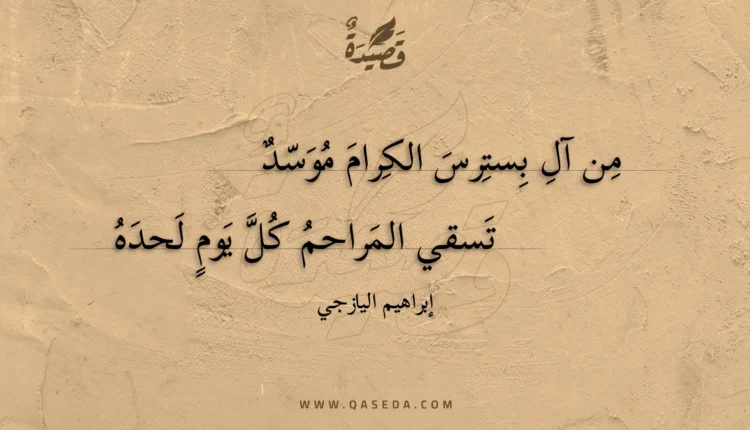 قَصِيدَةٌ
مِن آلِ بِستِرسَ الكِرامَ مُوَسّدٌ
تَسقي المَراحمُ كُلَّ يَومٍ لَحدَهُ
إبراهيم اليازجي
WWW.QASEDA.COM